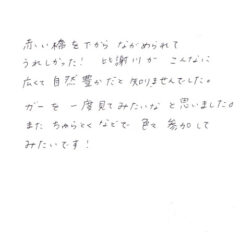 赤い橋を下から ながめられて
うれしかった! 比謝川が こんなに
広くて 自然 豊かだと 知りませんでした。
ガーを 一度見てみたいな と思いました。
また ちゃらとく などで 色々 参加して
みたいです!